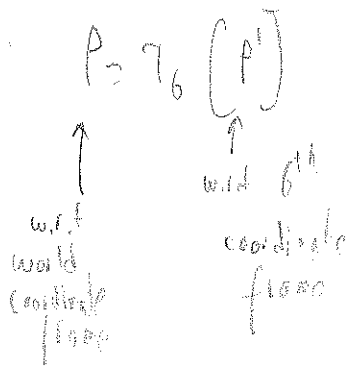 P = T₆ [P']
w.r.t
world
coordinate
frame
w.r.t 6th
coordinate
frame